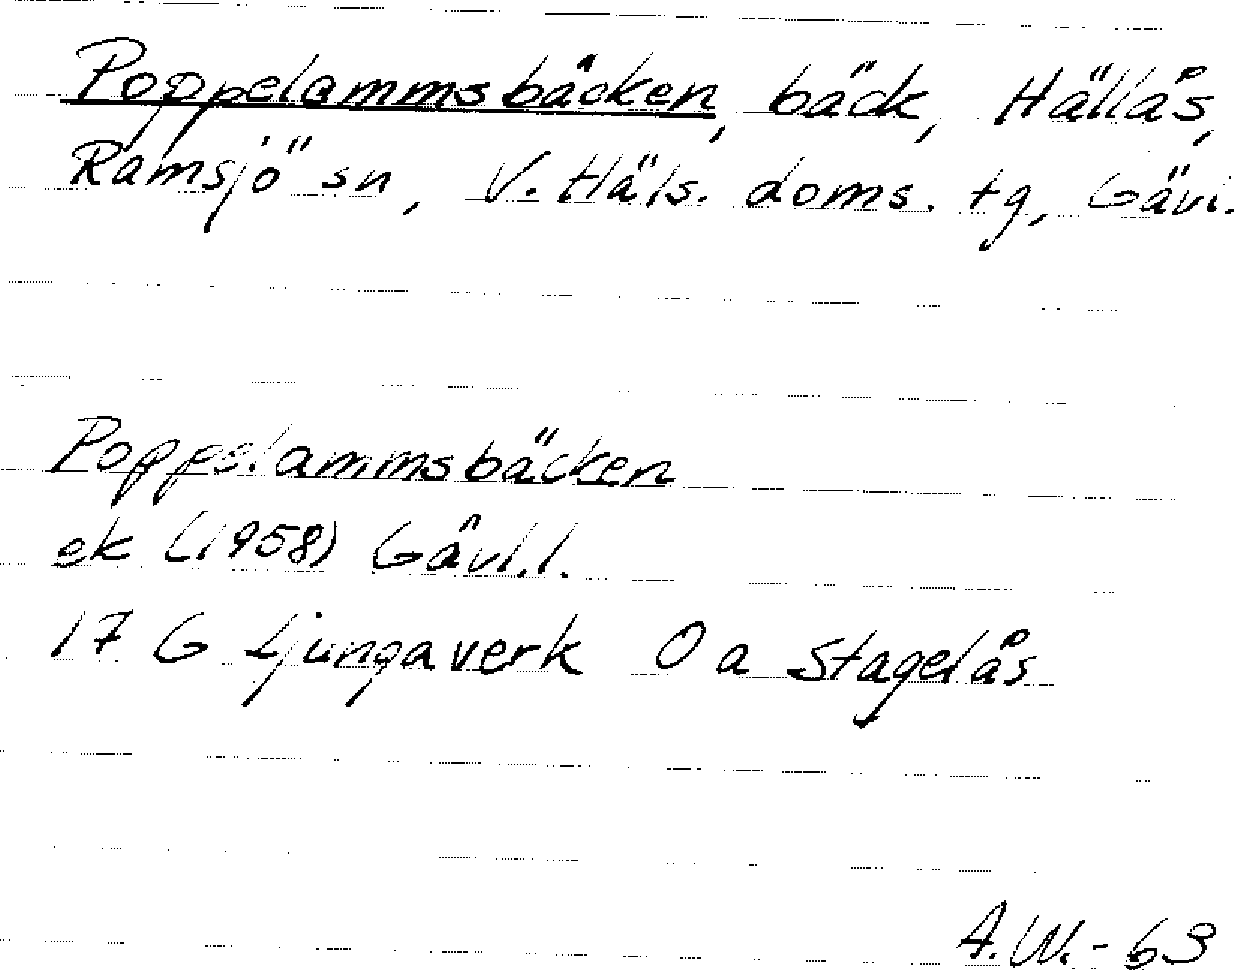 Poppelammsbäcken, bäck, Hällås,
Ramsjö sn, V. Häls. doms. tg, Gävl.
Poppelammsbäcken
ek (1958) Gävl.l.
17 G Ljungaverk O a Stagelås
A.W.-63